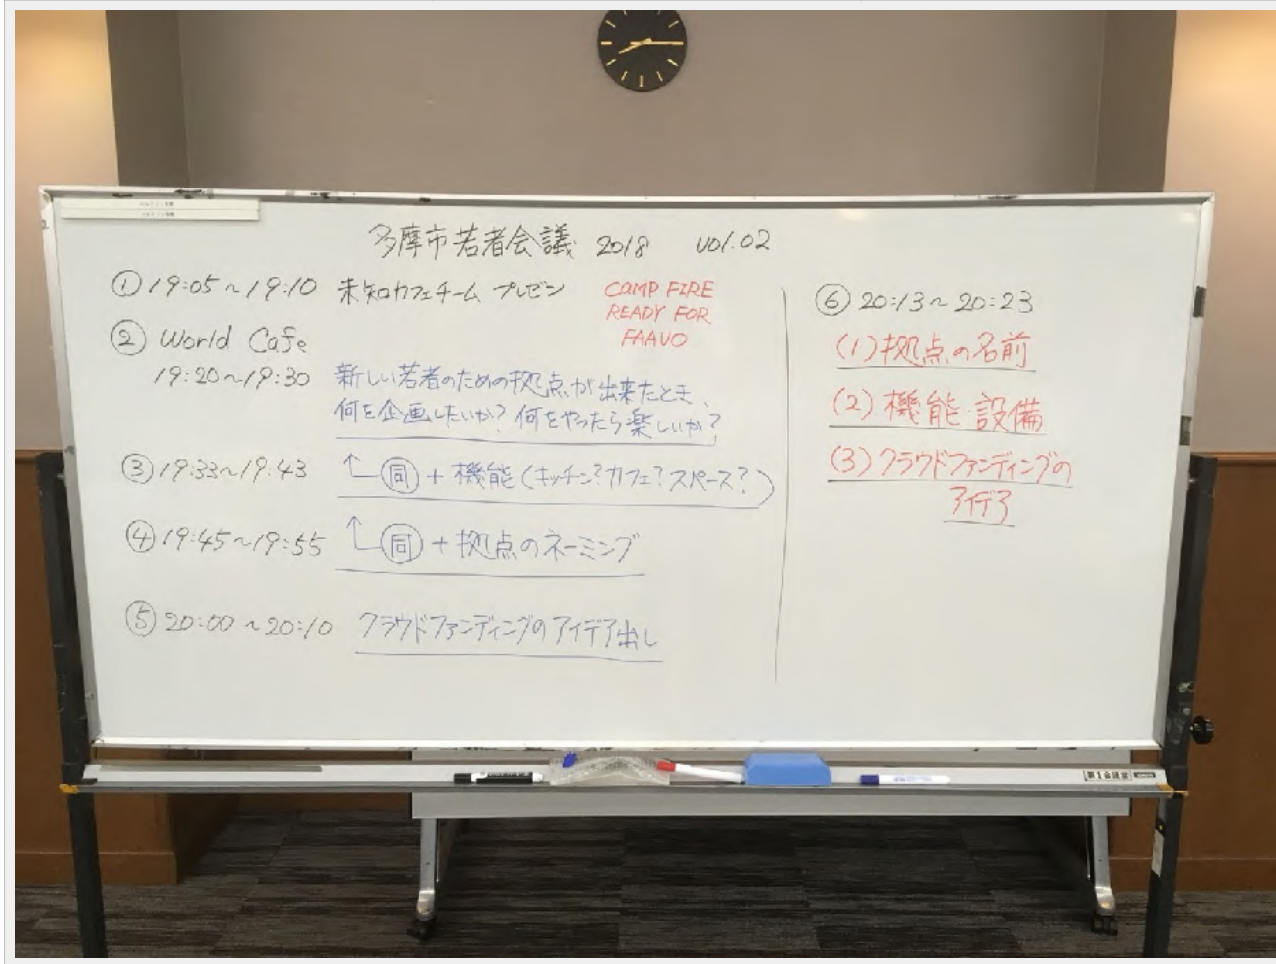 多摩市若者会議 2018 vol.02
① 19:05~19:10 未知カフェチーム プレゼン
CAMP FIRE
READY FOR
FAAVO
② World Cafe
19:20~19:30 新しい若者のための拠点が出来たとき、
何を企画したいか?何をやったら楽しいか?
③ 19:33~19:43 同 + 機能(キッチン?カフェ?スペース?)
④ 19:45~19:55 同 + 拠点のネーミング
⑤ 20:00~20:10 クラウドファンディングのアイデア出し
⑥ 20:13~20:23
(1)拠点の名前
(2)機能・設備
(3)クラウドファンディングの
アイデア
第1会議室